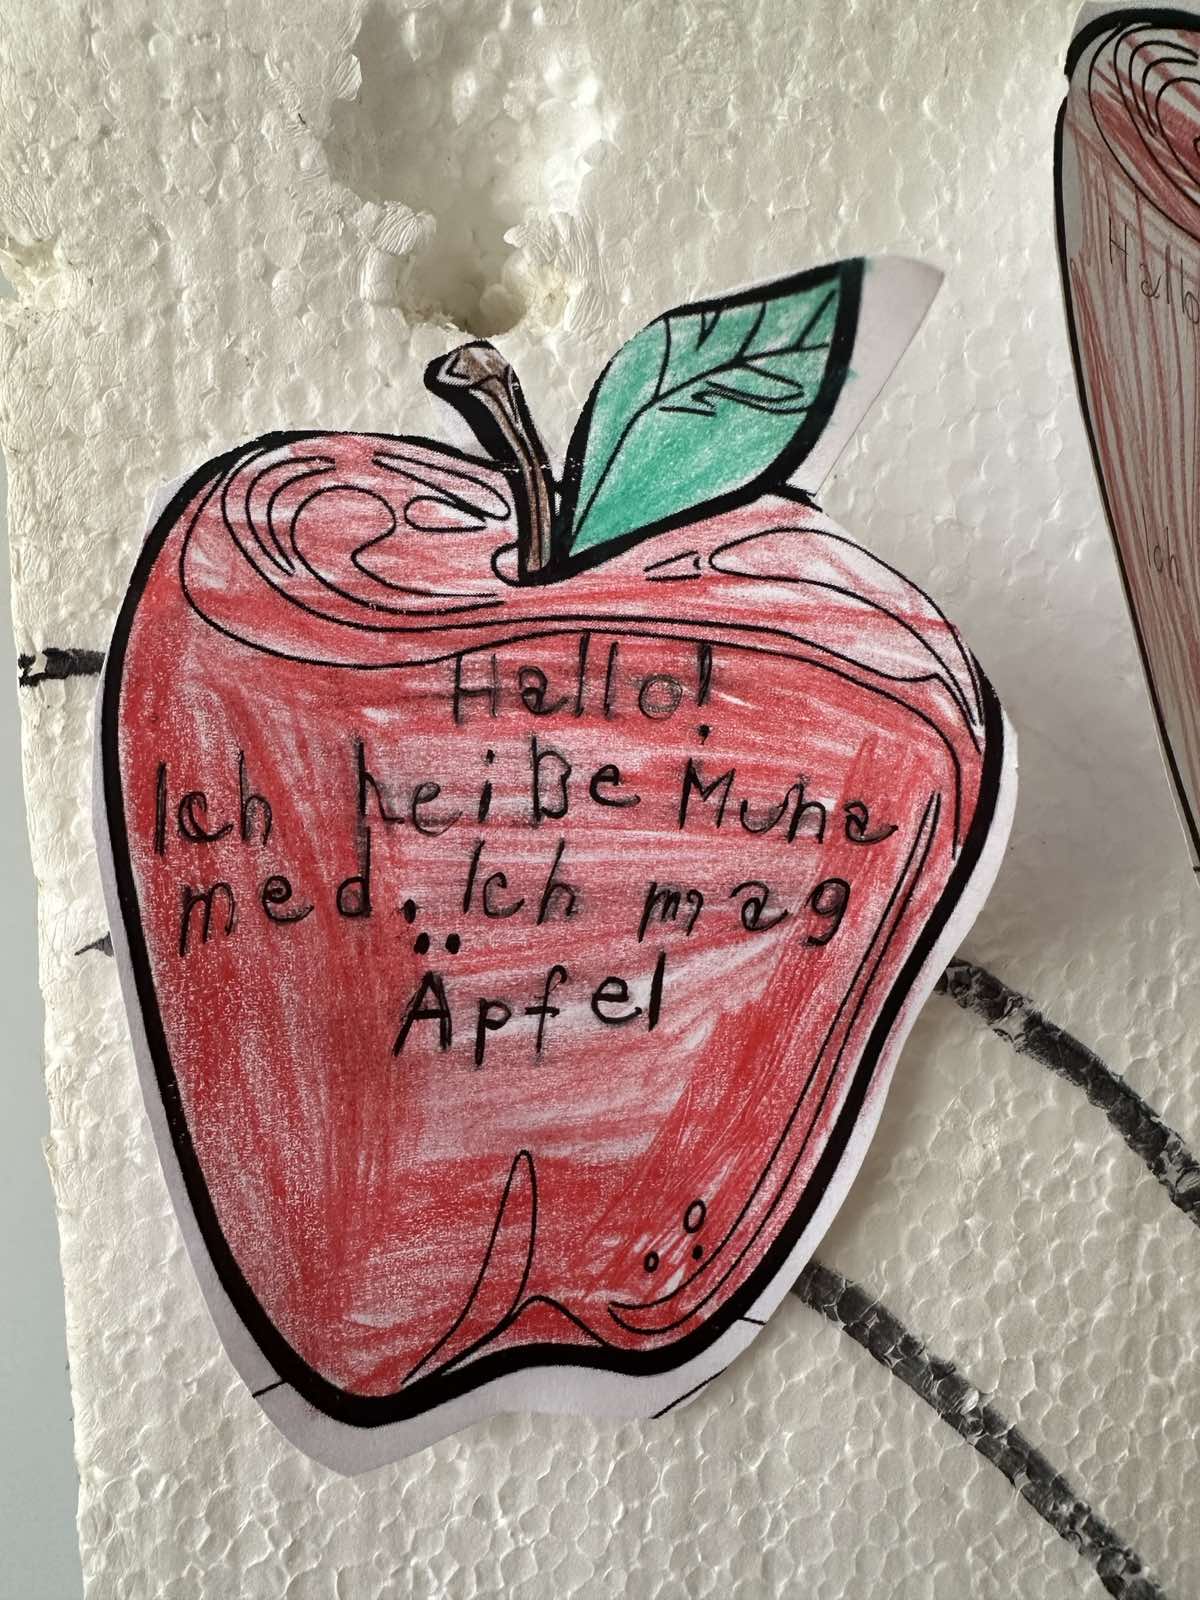 Hallo!
Ich heiße Muha
med. Ich mag
Äpfel
Hallo
Ich